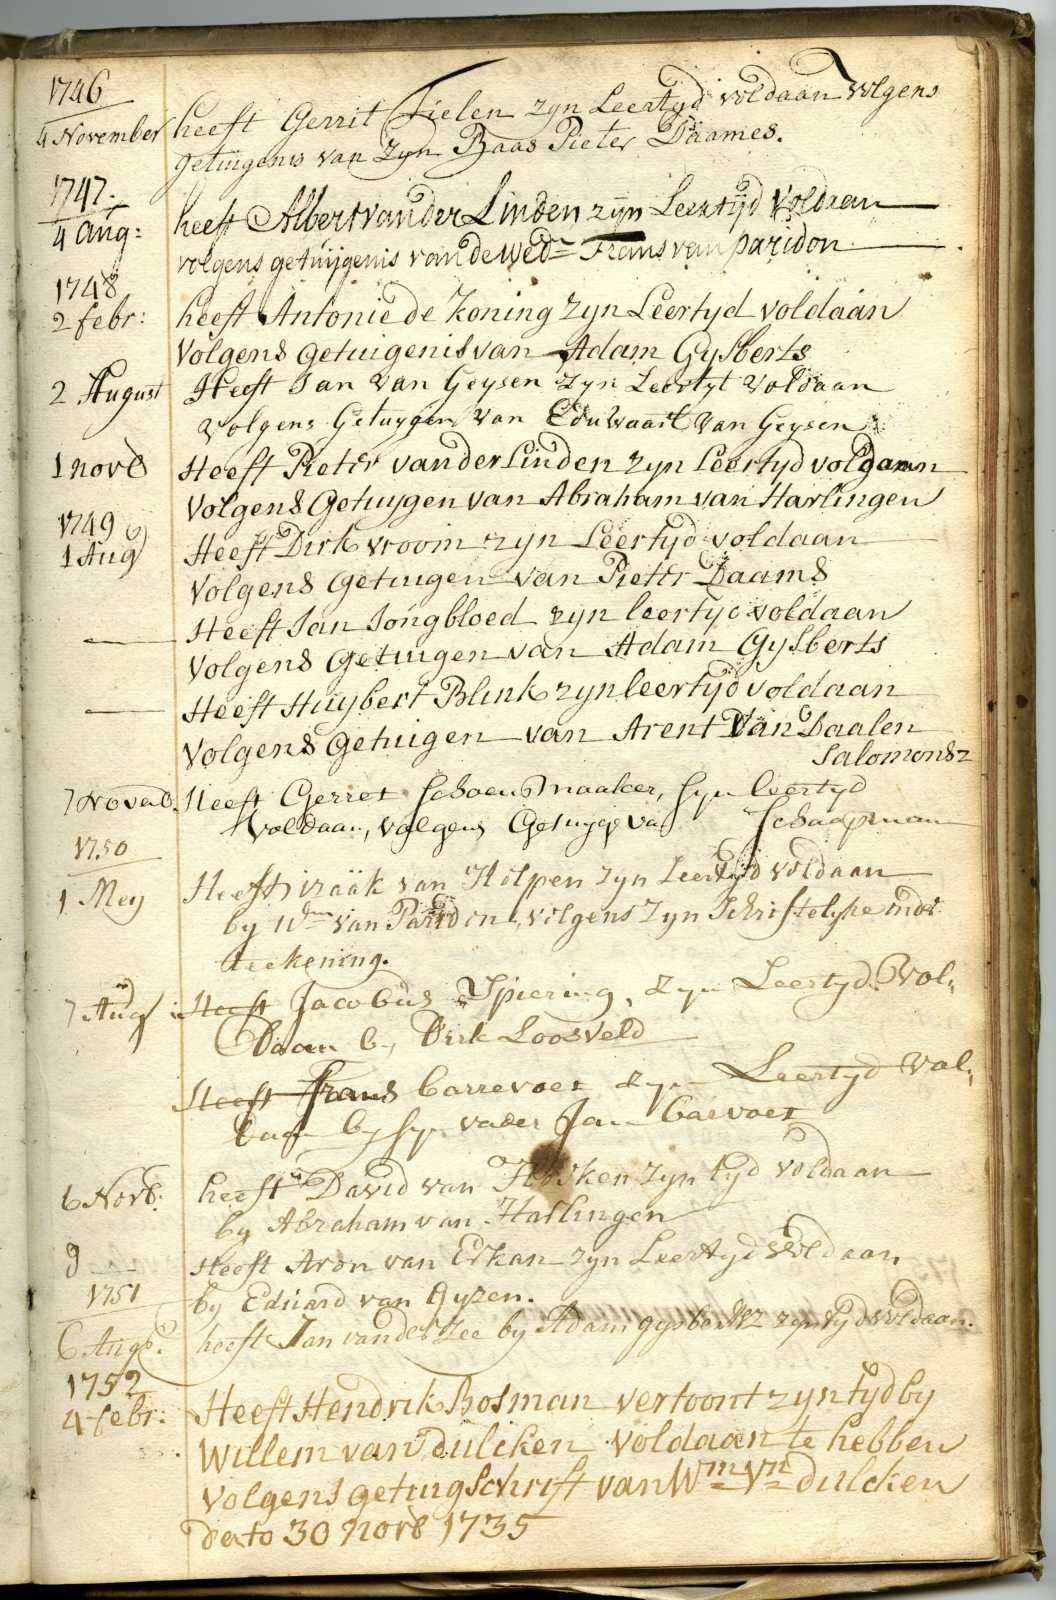 1746
4 November heeft Gerrit Tielen zyn Leertyd voldaan volgens
getuigenis van zyn Baas Pieter Daames.
1747.
4 aug: heeft Albert van der Linden zÿn Leertÿd voldaan
volgens getuÿgenis van de wed= Frans van paridon
1748
2 febr: heeft Antonie de Koning zyn Leertyd voldaan
Volgens getuigenis van Adam Gysberts
2 August Heeft Jan van Geysen zyn Leertyt voldaan
volgens Getuygen van Eduwaart van Geysen
1 novb Heeft Pieter van der Linden zyn Leertyd voldaan
Volgens Getuygen van Abraham van Harlingen
1749
1 Aug Heeft Dirk vroom zyn Leertyd voldaan
Volgens getuigen van Pieter Daams
— Heeft Jan Jongbloed zyn leertyd voldaan
Volgens getuigen van Adam Gysberts
— Heeft Huybert Blink zyn leertyd voldaan
Volgens getuigen van Arent Van Daalen
Salomonsz
7 Novemb. Heeft Gerret Schoenmaaker, syn leertyd
voldaan, volgens Getuyge van Schaapman
1750
1 Mey Heeft izaäk van Helpen zyn Leertyd voldaan
by Wdm van Paridon, volgens zyn schriftelyke onder
teekening.
7 Aug Heeft Jacobus Spiering, zyn Leertyd Vol„
Daan by Dirk Loosveld
Heeft Frans Carrevoet zyn Leertyd Vol„
Daan by syn vader Jan Carvoet
6 Novb: heeft David van Hosken zyn tyd voldaan
by Abraham van Harlingen
9 — Heeft Aron van Erkan zyn Leertyd voldaan
1751 by Eduard van Gyzen.
6 Augs. heeft Jan van der Zee by Adam gysbertsz zyn tyd voldaan.
1752
4 febr: Heeft Hendrik Bosman vertoont zyn tyd by
Willem van dulcken voldaan te hebben
volgens getuigschrift van Wm Vn dulcken
dato 30 novb 1735